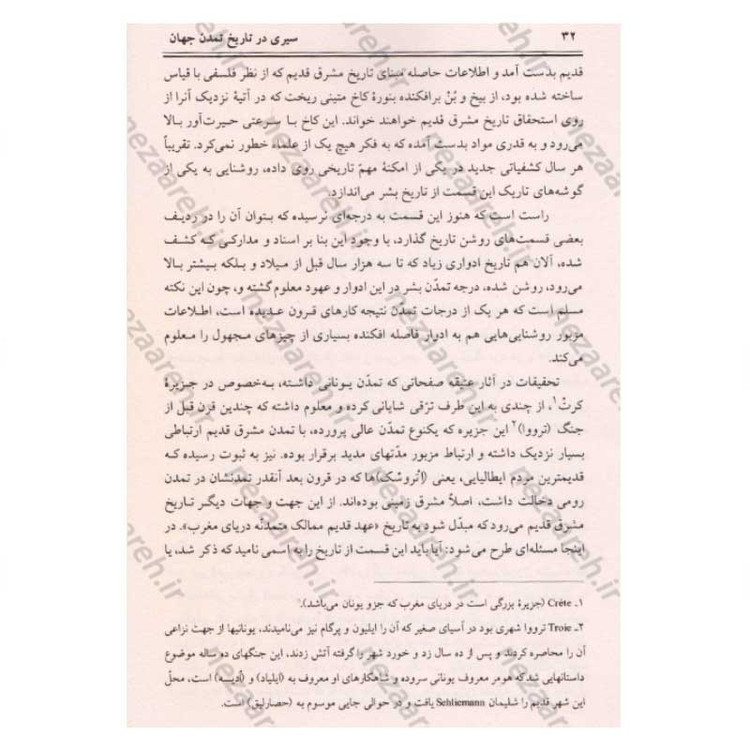 ۳۲ سیری در تاریخ تمدن جهان
قدیم بدست آمد و اطلاعات حاصله مبنای تاریخ مشرق قدیم که از نظر فلسفی با قیاس
ساخته شده بود، از بیخ و بُنْ برافکنده بنورهٔ کاخ متینی ریخت که در آتیهٔ نزدیک آنرا از
روی استحقاق تاریخ مشرق قدیم خواهند خواند. این کاخ با سرعتی حیرت‌آور بالا
می‌رود و به قدری مواد بدست آمده که به فکر هیچ یک از علماء خطور نمی‌کرد. تقریباً
هر سال کشفیاتی جدید در یکی از امکنهٔ مهمّ تاریخی روی داده، روشنایی به یکی از
گوشه‌های تاریک این قسمت از تاریخ بشر می‌اندازد.
راست است که هنوز این قسمت به درجه‌ای نرسیده که بتوان آن را در ردیف
بعضی قسمت‌های روشن تاریخ گذارد، با وجود این بنا بر اسناد و مدارکی که کشف
شده، آلان هم تاریخ ادواری زیاد که تا سه هزار سال قبل از میلاد و بلکه بیشتر بالا
می‌رود، روشن شده، درجه تمدّن بشر در این ادوار و عهود معلوم گشته و، چون این نکته
مسلم است که هر یک از درجات تمدّن نتیجه کارهای قرون عدیده است، اطلاعات
مزبور روشنایی‌هایی هم به ادوار فاصله افکنده بسیاری از چیزهای مجهول را معلوم
می‌کند.
تحقیقات در آثار عتیقه صفحاتی که تمدّن یونانی داشته، به‌خصوص در جزیرهٔ
کرتْ۱، از چندی به این طرف ترّقی شایانی کرده و معلوم داشته که چندین قرن قبل از
جنگ (ترووا)۲ این جزیره که یکنوع تمدّن عالی پرورده، با تمدن مشرق قدیم ارتباطی
بسیار نزدیک داشته و ارتباط مزبور مدّتهای مدید برقرار بوده. نیز به ثبوت رسیده که
قدیمترین مردم ایطالیایی، یعنی (اتْروسْک)ها که در قرون بعد آنقدر تمدنشان در تمدن
رومی دخالت داشت، اصلاً مشرق زمینی بوده‌اند. از این جهت و جهات دیگر تاریخ
مشرق قدیم می‌رود که مبدّل شود به تاریخ «عهد قدیم ممالک متمدّنه دریای مغرب». در
اینجا مسئله‌ای طرح می‌شود: آیا باید این قسمت از تاریخ را به اسمی نامید که ذکر شد، یا
۱ـ Crète (جزیرهٔ بزرگی است در دریای مغرب که جزو یونان می‌باشد).
۲ـ Troie ترووا شهری بود در آسیای صغیر که آن را ایلیون و پرگام نیز می‌نامیدند، یونانیها از جهت نزاعی
آن را محاصره کردند و پس از ده سال زد و خورد شهر را گرفته آتش زدند، این جنگهای ده ساله موضوع
داستانهایی شد که هومر معروف یونانی سروده و شاهکارهای او معروف به (ایلیاد) و (اُدیسه) است، محلّ
این شهر قدیم را شلیمان Schliemann یافت و در حوالی جایی موسوم به (حصارلیق) است.
nezaareh.ir